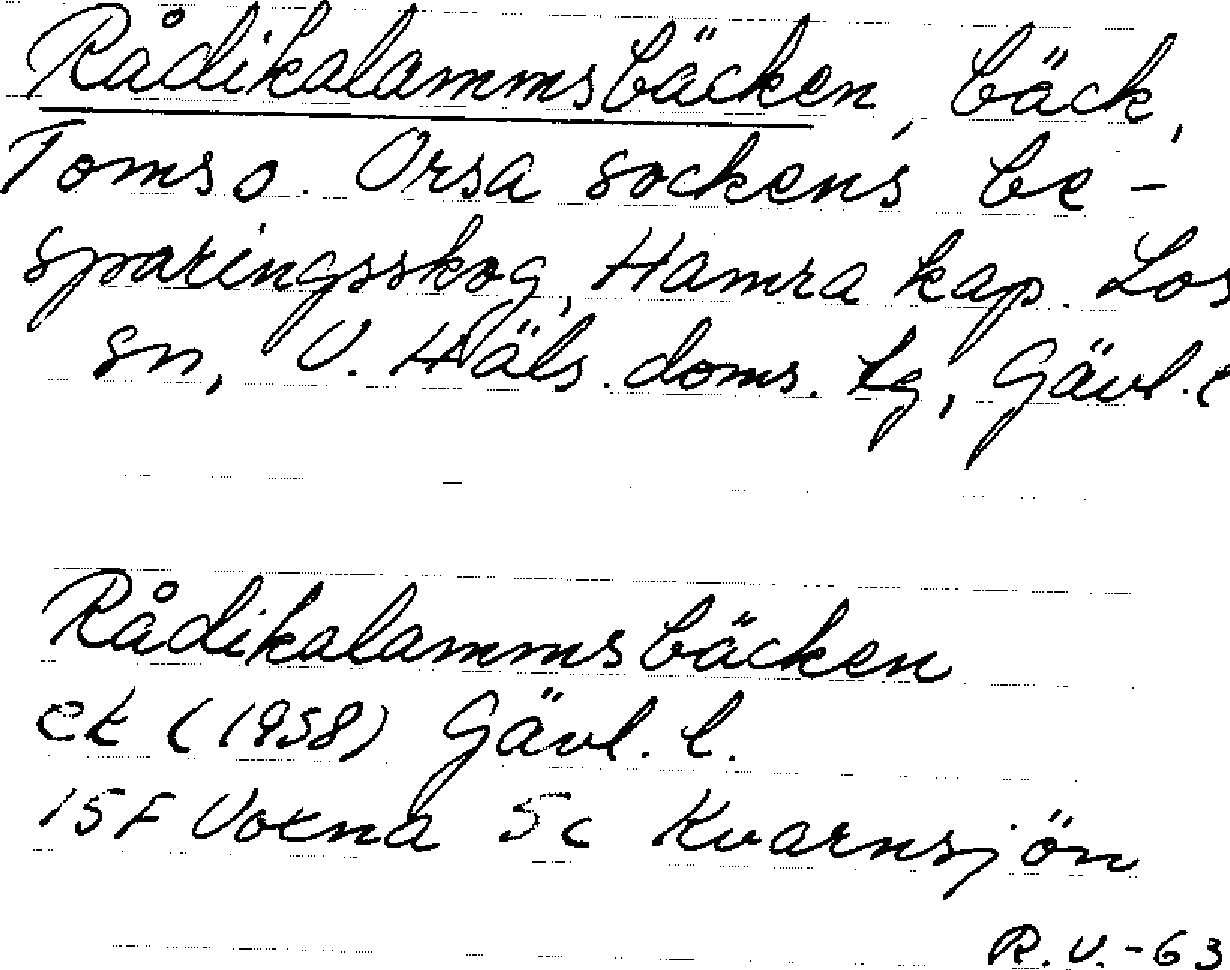 Rådikalammsbäcken, bäck,
Toms o. Orsa sockens be-
sparingsskog, Hamra kap. Los
sn, V. Häls. doms. tg, Gävl. l
Rådikalammsbäcken
ek (1958) Gävl. l.
15F Voxna 5c Kvarnsjön
R.V.-63